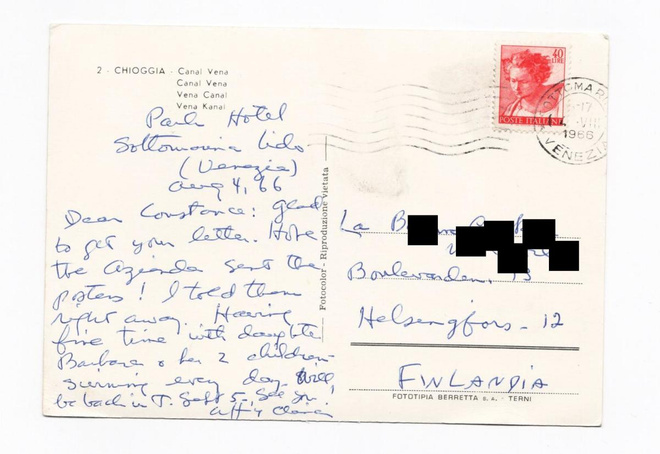 2 - CHIOGGIA - Canal Vena
Canal Vena
Vena Canal
Vena Kanal
Park Hotel
Sottomarina Lido
(Venezia)
Aug 4, 66
Dear Constance: Glad
to get your letter. Hope
the Azienda sent the
posters! I told them
right away. Having
fine time with daughter
Barbara & her 2 children
swimming every day. Will
be back in T. Sept 5. See you!
Aff'y
Fotocolor - Riproduzione vietata
40
LIRE
POSTE ITALIANE
1966
VENEZIA
La B
Boulevarden, 13
Helsingfors - 12
FINLANDIA
FOTOTIPIA BERRETTA S. A. - TERNI